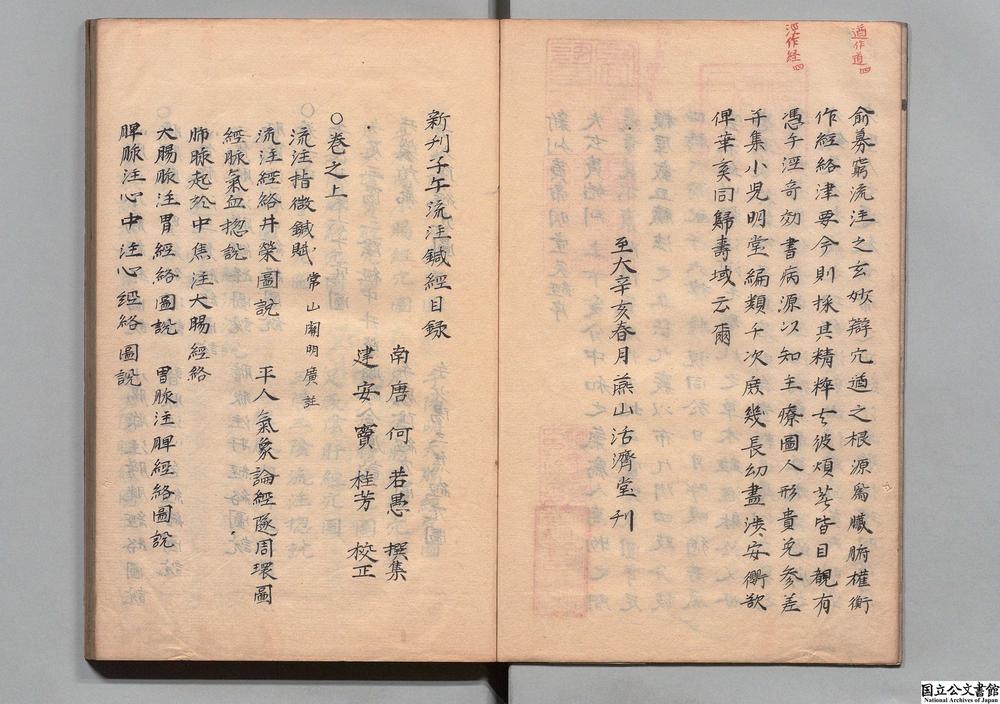 遒作道四
涇作経四
俞募窮流注之玄妙辯穴遒之根源為臟腑權衡
作經絡津要今則採其精粹去彼煩蕪皆目覩有
憑手涇竒効書病源以知主療圖人形貴免參差
并集小児明堂編類千次庻幾長幼盡涉安衢欲
俾華夷同歸壽域云爾
至大辛亥春月燕山活濟堂刋
新刋子午流注鍼經目録
南唐何若愚撰集
建安竇桂芳校正
○卷之上
流注指微鍼賦 常山閻明廣註
流注經絡井榮圖説 平人氣象論經隧周環圖
經脉氣血揔説
肺脉起於中焦注大腸經絡
大腸脉注胃經絡圖説 胃脉注脾經絡圖説
脾脉注心中注心經絡圖説
国立公文書館
National Archives of Japan